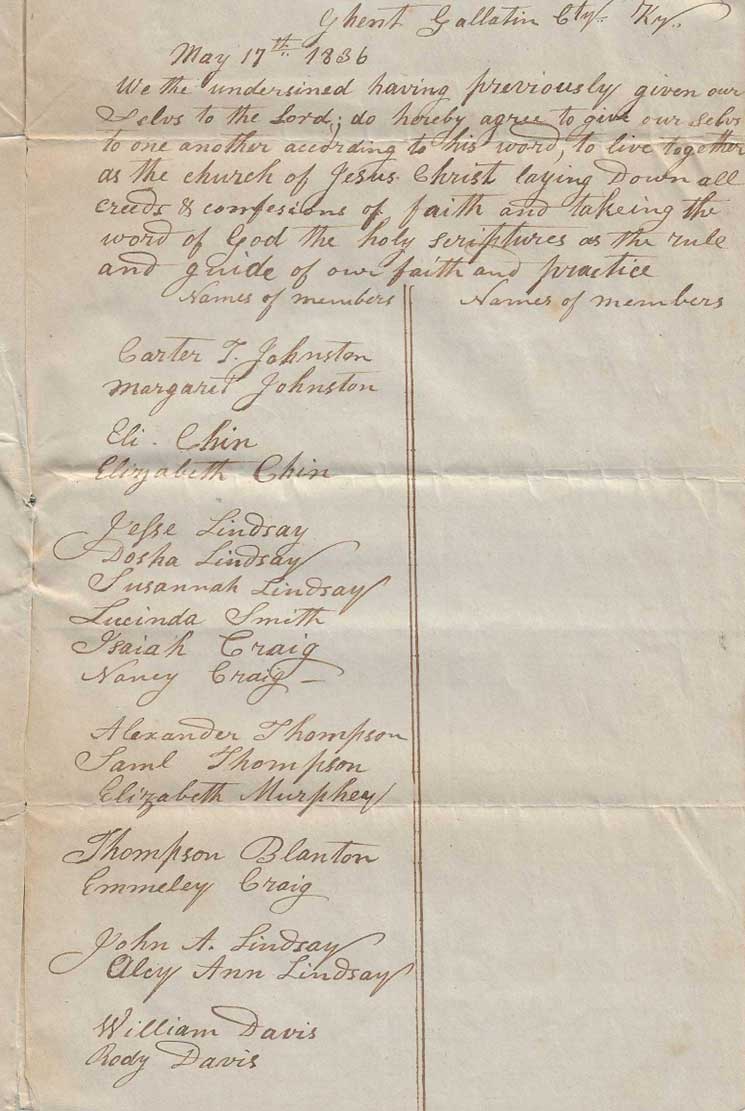 Ghent Gallatin Cty. Ky.
May 17th 1836
We the undersined having previously given our
selvs to the Lord; do hereby agree to give our selvs
to one another according to his word, to live together
as the church of Jesus Christ laying Down all
creeds & confesions of faith and takeing the
word of God the holy scriptures as the rule
and guide of our faith and practice
Names of members
Names of members
Carter T. Johnston
Margaret Johnston
Eli Chin
Elizabeth Chin
Jesse Lindsay
Dosha Lindsay
Susannah Lindsay
Lucinda Smith
Isaiah Craig
Nancy Craig
Alexander Thompson
Saml Thompson
Elizabeth Murphey
Thompson Blanton
Emmeley Craig
John A. Lindsay
Alcy Ann Lindsay
William Davis
Rody Davis